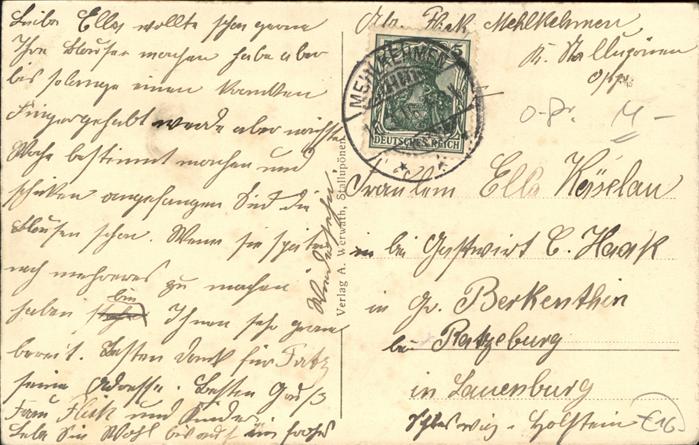 Liebe Ella wollte schon gerne
Ihre Blusen machen habe aber
bis solange einen kranken
Finger gehabt werde aber nächste
Woche bestimmt machen und
schicken angefangen sind die
Blusen schon. Wenn sie später
noch mehreres zu machen
haben bin
Ihnen sehr gerne
bereit. Besten Dank für
seine Adresse. Besten Gruß
Frau Flick und Kinder.
Lebe Sie Wohl bis auf ein frohes
Wiedersehn.
Verlag A. Werwath, Stallupönen
Flick Mehlkehmen
K. Stallupönen
MEHLKEHMEN
5
DEUTSCHES REICH
Fräulein Ella Käselau
in bei Gastwirt C. Haak
in Gr. Berkenthin
bei Ratzeburg
in Lauenburg
Schleswig-Holstein